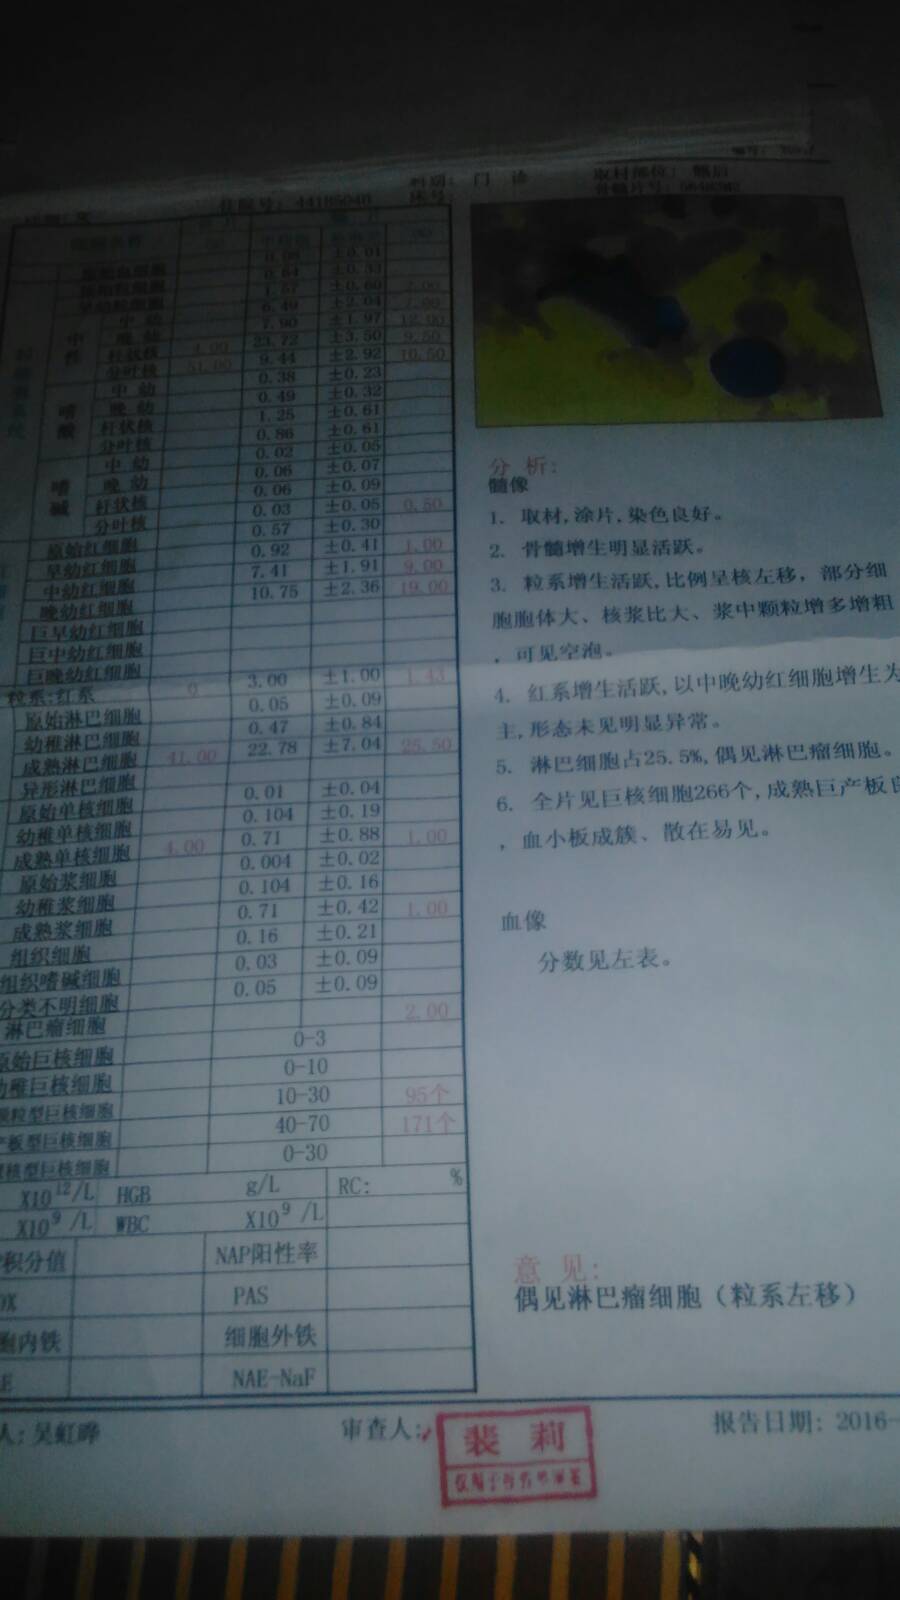 科别: 门 诊
取材部位: 髂后
床号:
住院号: 44185040
±0.01
0.64 ±0.33
1.57 ±0.60 2.00
6.49 ±2.04
中性
中 幼 7.90 ±1.97 12.00
晚 幼 23.72 ±3.50 9.50
杆状核 4.00 9.44 ±2.92 10.50
分叶核 51.00 0.38 ±0.23
嗜酸
中 幼 0.49 ±0.32
晚 幼 1.25 ±0.61
杆状核 0.86 ±0.61
分叶核 0.02 ±0.05
嗜碱
中 幼 0.06 ±0.07
晚 幼 0.06 ±0.09
杆状核 0.03 ±0.05 0.50
分叶核 0.57 ±0.30
原始红细胞 0.92 ±0.41 1.00
早幼红细胞 7.41 ±1.91 9.00
中幼红细胞 10.75 ±2.36 19.00
晚幼红细胞
巨早幼红细胞
巨中幼红细胞
巨晚幼红细胞
粒系:红系 0 3.00 ±1.00 1.43
原始淋巴细胞 0.05 ±0.09
幼稚淋巴细胞 0.47 ±0.84
成熟淋巴细胞 41.00 22.78 ±7.04 25.50
异形淋巴细胞
原始单核细胞 0.01 ±0.04
幼稚单核细胞 0.104 ±0.19
成熟单核细胞 4.00 0.71 ±0.88 1.00
原始浆细胞 0.004 ±0.02
幼稚浆细胞 0.104 ±0.16
成熟浆细胞 0.71 ±0.42 1.00
组织细胞 0.16 ±0.21
组织嗜碱细胞 0.03 ±0.09
分类不明细胞 0.05 ±0.09
淋巴瘤细胞 2.00
原始巨核细胞 0-3
幼稚巨核细胞 0-10
颗粒型巨核细胞 10-30 95个
产板型巨核细胞 40-70 171个
裸核型巨核细胞 0-30
X10¹²/L HGB g/L RC: %
X10⁹ /L WBC X10⁹ /L
积分值 NAP阳性率
PAS
胞内铁 细胞外铁
E NAE-NaF
分 析:
髓像
1. 取材,涂片,染色良好。
2. 骨髓增生明显活跃。
3. 粒系增生活跃,比例呈核左移, 部分细
胞胞体大、核浆比大、浆中颗粒增多增粗
, 可见空泡。
4. 红系增生活跃,以中晚幼红细胞增生为
主,形态未见明显异常。
5. 淋巴细胞占25.5%,偶见淋巴瘤细胞。
6. 全片见巨核细胞266个,成熟巨产板良
, 血小板成簇、散在易见。
血像
分数见左表。
意 见:
偶见淋巴瘤细胞（粒系左移）
人: 吴虹晔
审查人:
裴 莉
报告日期: 2016-